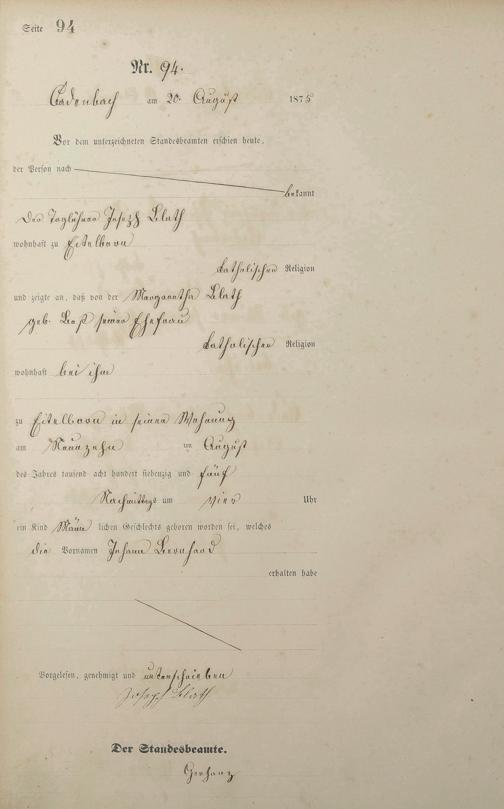 Seite 94
Nr. 94.
Cadenbach am 20. August 1875
Vor dem unterzeichneten Standesbeamten erschien heute,
der Person nach
bekannt
Der Taglöhner Joseph
wohnhaft zu Eitelborn
katholischer Religion
und zeigte an, daß von der Margaretha
geb. seiner Ehefrau
katholischer Religion
wohnhaft bei ihm
zu Eitelborn in seiner Wohnung
am Neunzehn ten August
des Jahres tausend acht hundert siebenzig und fünf
Nachmittags um vier Uhr
ein Kind Männ lichen Geschlechts geboren worden sei, welches
die Vornamen Johann Bernhard
erhalten habe
Vorgelesen, genehmigt und unterschrieben
Joseph
Der Standesbeamte.